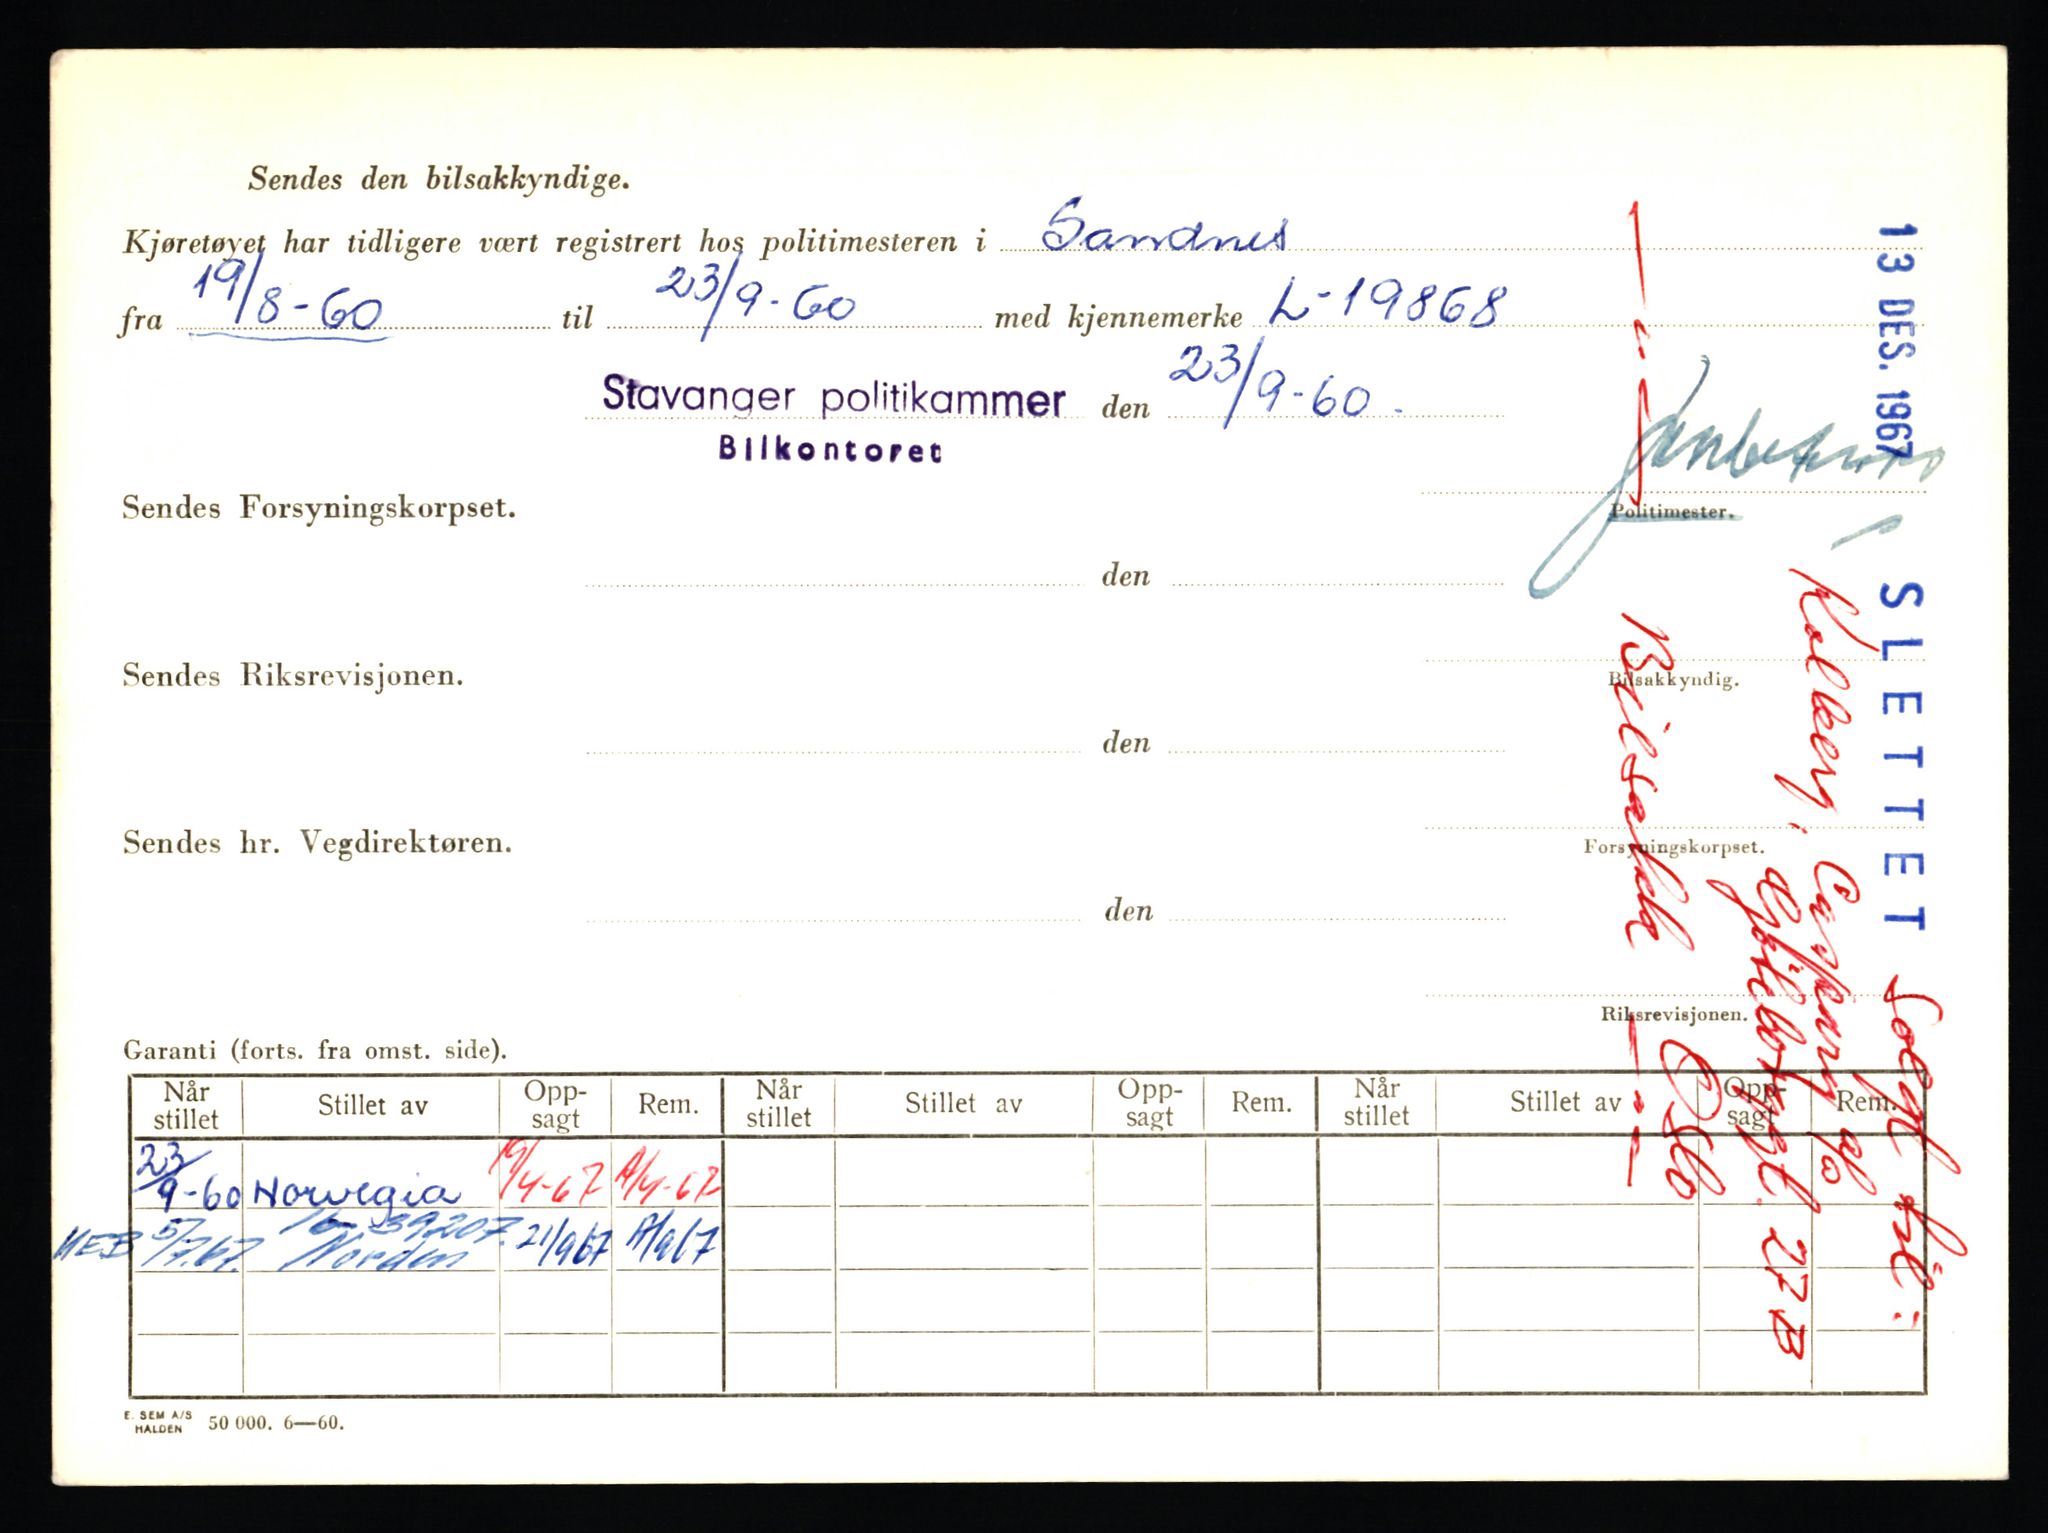 Sendes den bilsakkyndige.
Kjøretøyet har tidligere vært registrert hos politimesteren i Sandnes
fra 19/8-60 til 23/9-60 med kjennemerke L-19868
Stavanger politikammer den 23/9-60.
Bilkontoret
Politimester.
Sendes Forsyningskorpset.
den
Bilsakkyndig.
Sendes Riksrevisjonen.
den
Forsyningskorpset.
Sendes hr. Vegdirektøren.
den
Riksrevisjonen.
Garanti (forts. fra omst. side).
Når stillet Stillet av Opp-sagt Rem. Når stillet Stillet av Opp-sagt Rem. Når stillet Stillet av Opp-sagt Rem.
23/9-60 Norwegia 19/4-67 A/4-67
5/7.67. 39207. 21/9 67 A/9 67
Norden
E. SEM A/S
HALDEN
50 000. 6—60.
13 DES. 1967
SLETTET
Solgt til:
Kolberg, Caspary a/s
27 B
Oslo
Bilsakk